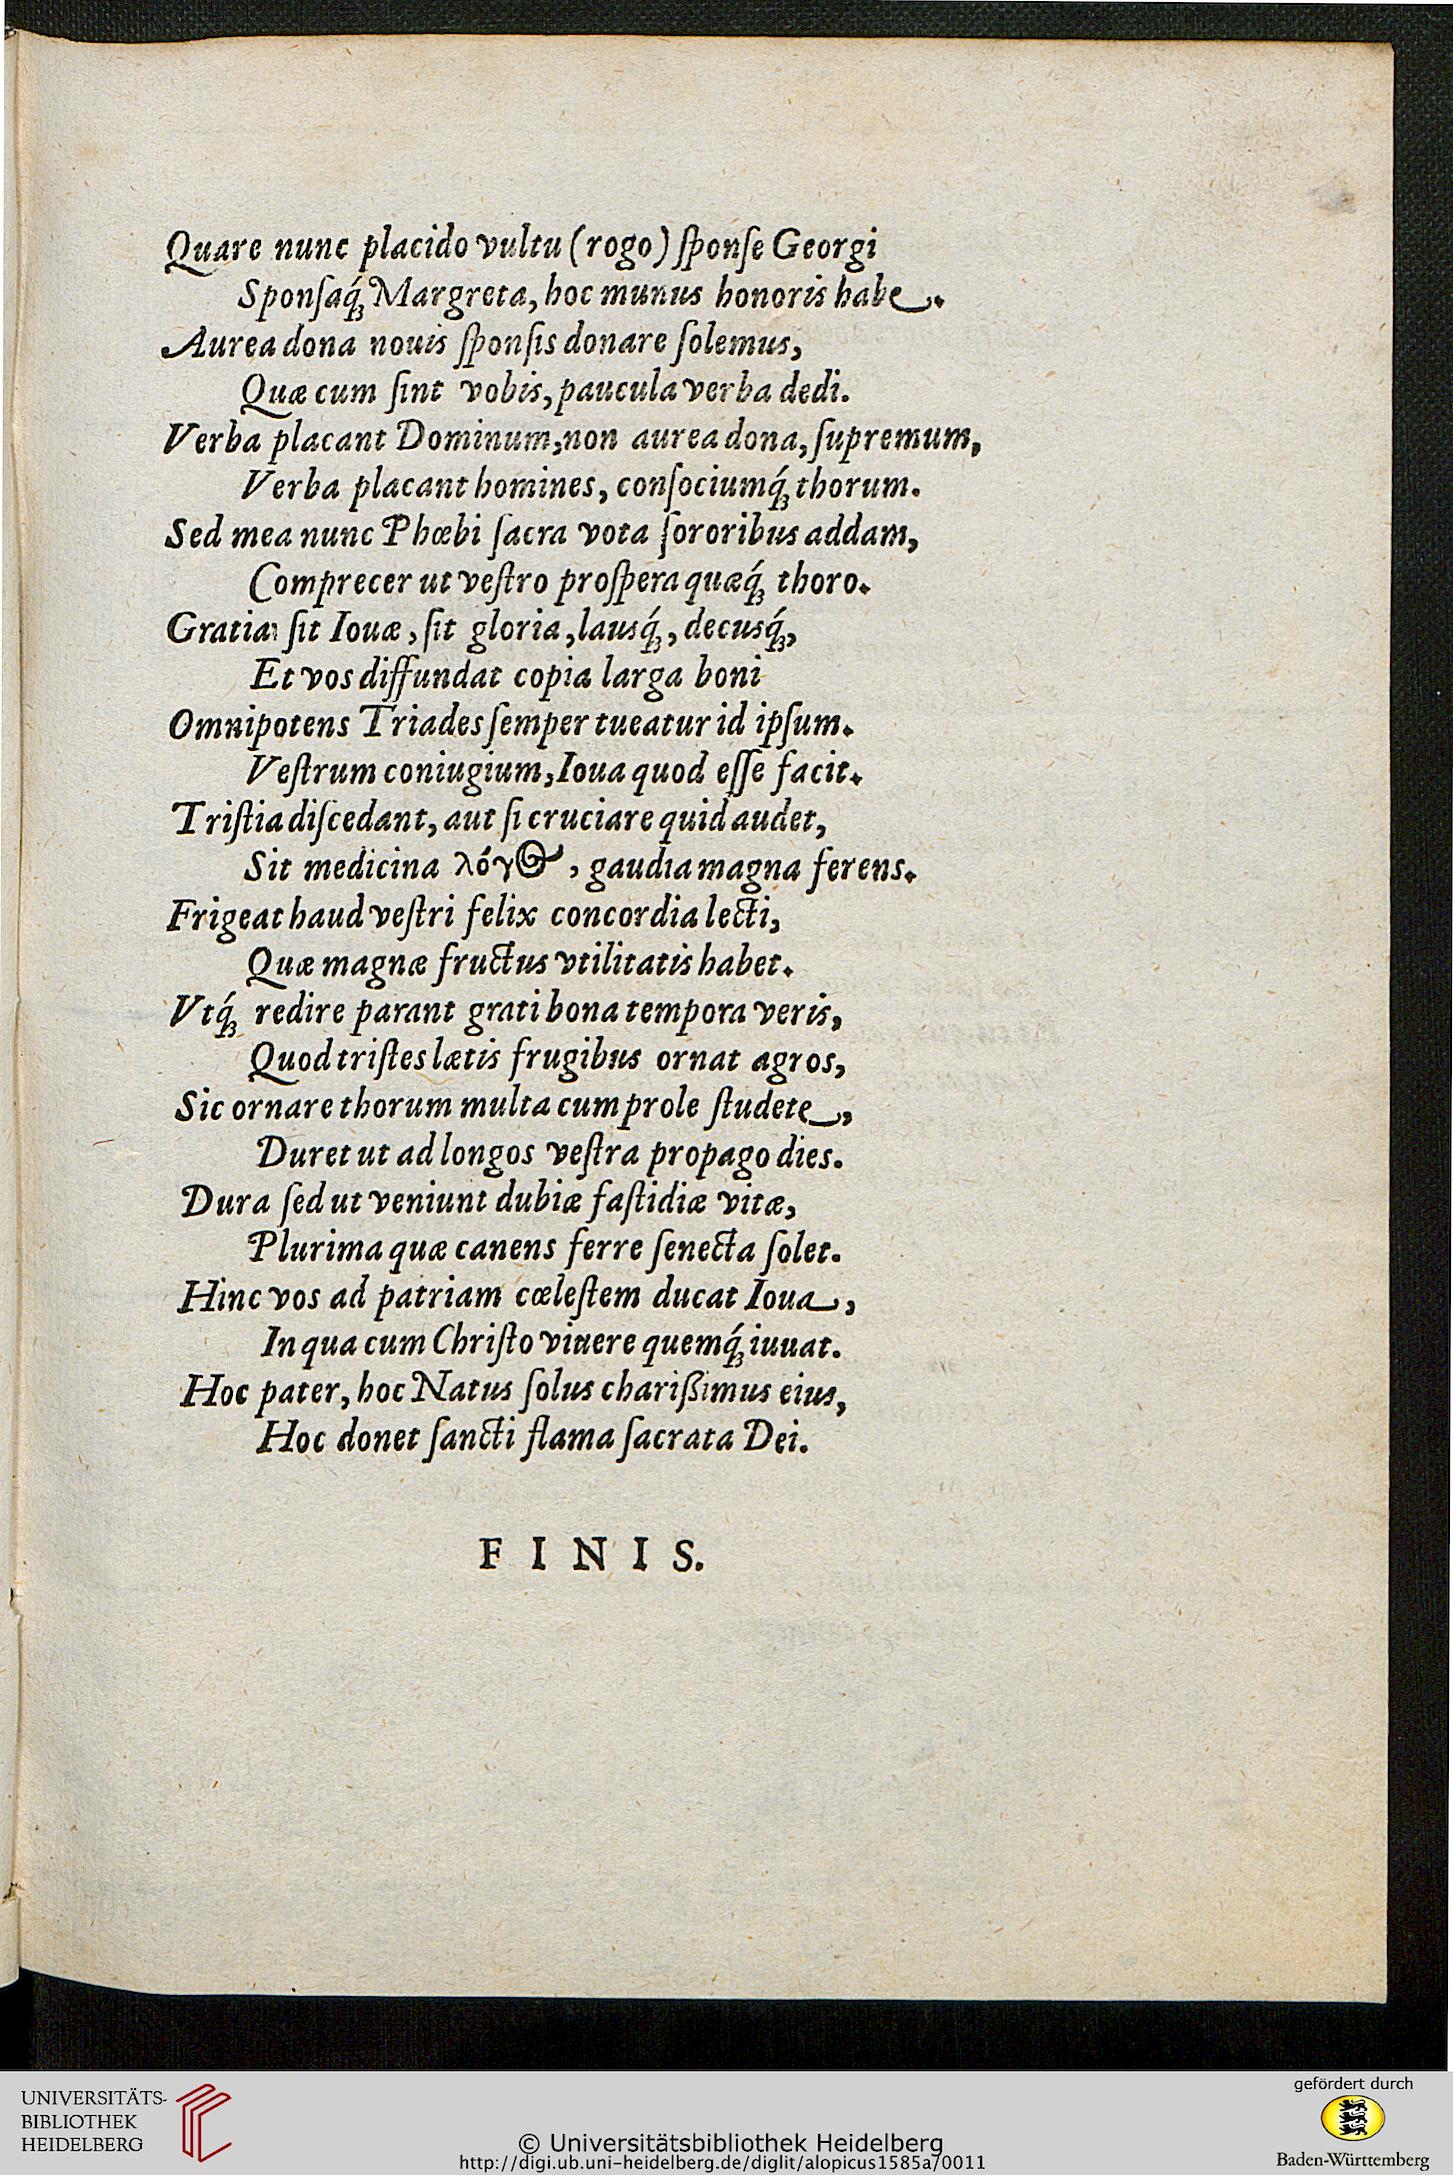 Quare nunc placido vultu (rogo) ſponſe Georgi
Sponſaq́ꝫ Margreta, hoc munus honoris habe.
Aurea dona nouis ſponſis donare ſolemus,
Quæ cum ſint vobis, paucula verba dedi.
Verba placant Dominum, non aurea dona, ſupremum,
Verba placant homines, conſociumq́ꝫ thorum.
Sed mea nunc Phœbi ſacra vota ſororibus addam,
Comprecer ut veſtro proſpera quæq́ꝫ thoro.
Gratia ſit Iouæ, ſit gloria, lausq́ꝫ, decusq́ꝫ,
Et vos diffundat copia larga boni
Omnipotens Triades ſemper tueatur id ipſum.
Veſtrum coniugium, Ioua quod eſſe facit.
Triſtia diſcedant, aut ſi cruciare quid audet,
Sit medicina λόγος, gaudia magna ferens.
Frigeat haud veſtri felix concordia lecti,
Quæ magnæ fructus vtilitatis habet.
Vtq́ꝫ redire parant grati bona tempora veris,
Quod triſtes lætis frugibus ornat agros,
Sic ornare thorum multa cum prole ſtudete,
Duret ut ad longos veſtra propago dies.
Dura ſed ut veniunt dubiæ faſtidiæ vitæ,
Plurima quæ canens ferre ſenecta ſolet.
Hinc vos ad patriam cœleſtem ducat Ioua,
In qua cum Chriſto viuere quemq́ꝫ iuuat.
Hoc pater, hoc Natus ſolus charißimus eius,
Hoc donet ſancti flama ſacrata Dei.
FINIS.
UNIVERSITÄTS-
BIBLIOTHEK
HEIDELBERG
© Universitätsbibliothek Heidelberg
http://digi.ub.uni-heidelberg.de/diglit/alopicus1585a/0011
gefördert durch
Baden-Württemberg